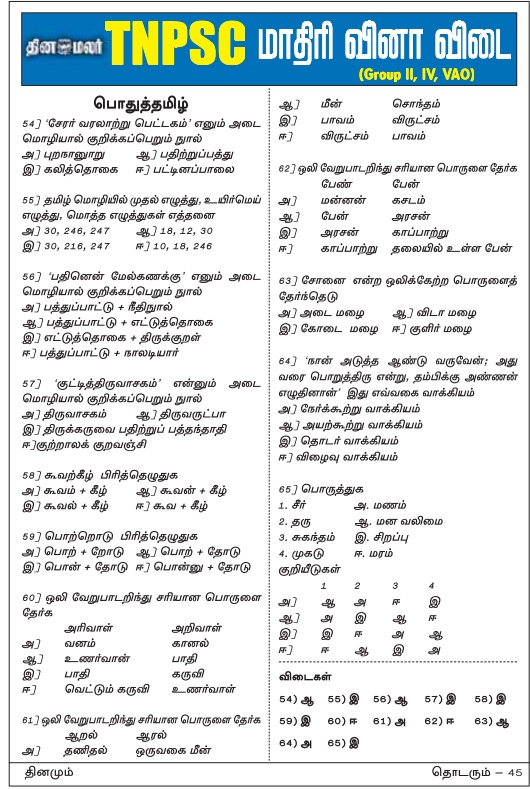 தினமலர் TNPSC மாதிரி வினா விடை
(Group II, IV, VAO)
பொதுத்தமிழ்
54] 'சேரர் வரலாற்று பெட்டகம்' எனும் அடை
மொழியால் குறிக்கப்பெறும் நுால்
அ] புறநானுாறு ஆ] பதிற்றுப்பத்து
இ] கலித்தொகை ஈ] பட்டினப்பாலை
55] தமிழ் மொழியில் முதல் எழுத்து, உயிர்மெய்
எழுத்து, மொத்த எழுத்துகள் எத்தனை
அ] 30, 246, 247 ஆ] 18, 12, 30
இ] 30, 216, 247 ஈ] 10, 18, 246
56] 'பதினென் மேல்கணக்கு' எனும் அடை
மொழியால் குறிக்கப்பெறும் நுால்
அ] பத்துப்பாட்டு + நீதிநுால்
ஆ] பத்துப்பாட்டு + எட்டுத்தொகை
இ] எட்டுத்தொகை + திருக்குறள்
ஈ] பத்துப்பாட்டு + நாலடியார்
57] 'குட்டித்திருவாசகம்' என்னும் அடை
மொழியால் குறிக்கப்பெறும் நுால்
அ] திருவாசகம் ஆ] திருவருட்பா
இ] திருக்கருவை பதிற்றுப் பத்தந்தாதி
ஈ]குற்றாலக் குறவஞ்சி
58] கூவற்கீழ் பிரித்தெழுதுக
அ] கூவம் + கீழ் ஆ] கூவன் + கீழ்
இ] கூவல் + கீழ் ஈ] கூவ + கீழ்
59] பொற்றொடு பிரித்தெழுதுக
அ] பொற் + றோடு ஆ] பொற் + தோடு
இ] பொன் + தோடு ஈ] பொன்னு + தோடு
60] ஒலி வேறுபாடறிந்து சரியான பொருளை
தேர்க
அரிவாள் அறிவாள்
அ] வனம் கானல்
ஆ] உணர்வான் பாதி
இ] பாதி கருவி
ஈ] வெட்டும் கருவி உணர்வாள்
61] ஒலி வேறுபாடறிந்து சரியான பொருளை தேர்க
ஆறல் ஆரல்
அ] தணிதல் ஒருவகை மீன்
ஆ] மீன் சொந்தம்
இ] பாவம் விருட்சம்
ஈ] விருட்சம் பாவம்
62] ஒலி வேறுபாடறிந்து சரியான பொருளை தேர்க
பேண் பேன்
அ] மன்னன் கசடம்
ஆ] பேன் அரசன்
இ] அரசன் காப்பாற்று
ஈ] காப்பாற்று தலையில் உள்ள பேன்
63] சோனை என்ற ஒலிக்கேற்ற பொருளைத்
தேர்ந்தெடு
அ] அடை மழை ஆ] விடா மழை
இ] கோடை மழை ஈ] குளிர் மழை
64] 'நான் அடுத்த ஆண்டு வருவேன்; அது
வரை பொறுத்திரு என்று, தம்பிக்கு அண்ணன்
எழுதினான்' இது எவ்வகை வாக்கியம்
அ] நேர்க்கூற்று வாக்கியம்
ஆ] அயற்கூற்று வாக்கியம்
இ] தொடர் வாக்கியம்
ஈ] விழைவு வாக்கியம்
65] பொருத்துக
1. சீர் அ. மணம்
2. தரு ஆ. மன வலிமை
3. சுகந்தம் இ. சிறப்பு
4. முகடு ஈ. மரம்
குறியீடுகள்
1 2 3 4
அ] ஆ அ ஈ இ
ஆ] அ இ ஆ ஈ
இ] இ ஈ அ ஆ
ஈ] ஈ ஆ இ அ
விடைகள்
54) ஆ 55) இ 56) ஆ 57) இ 58) இ
59) இ 60) ஈ 61) அ 62) ஈ 63) ஆ
64) அ 65) இ
தினமும் தொடரும் – 45